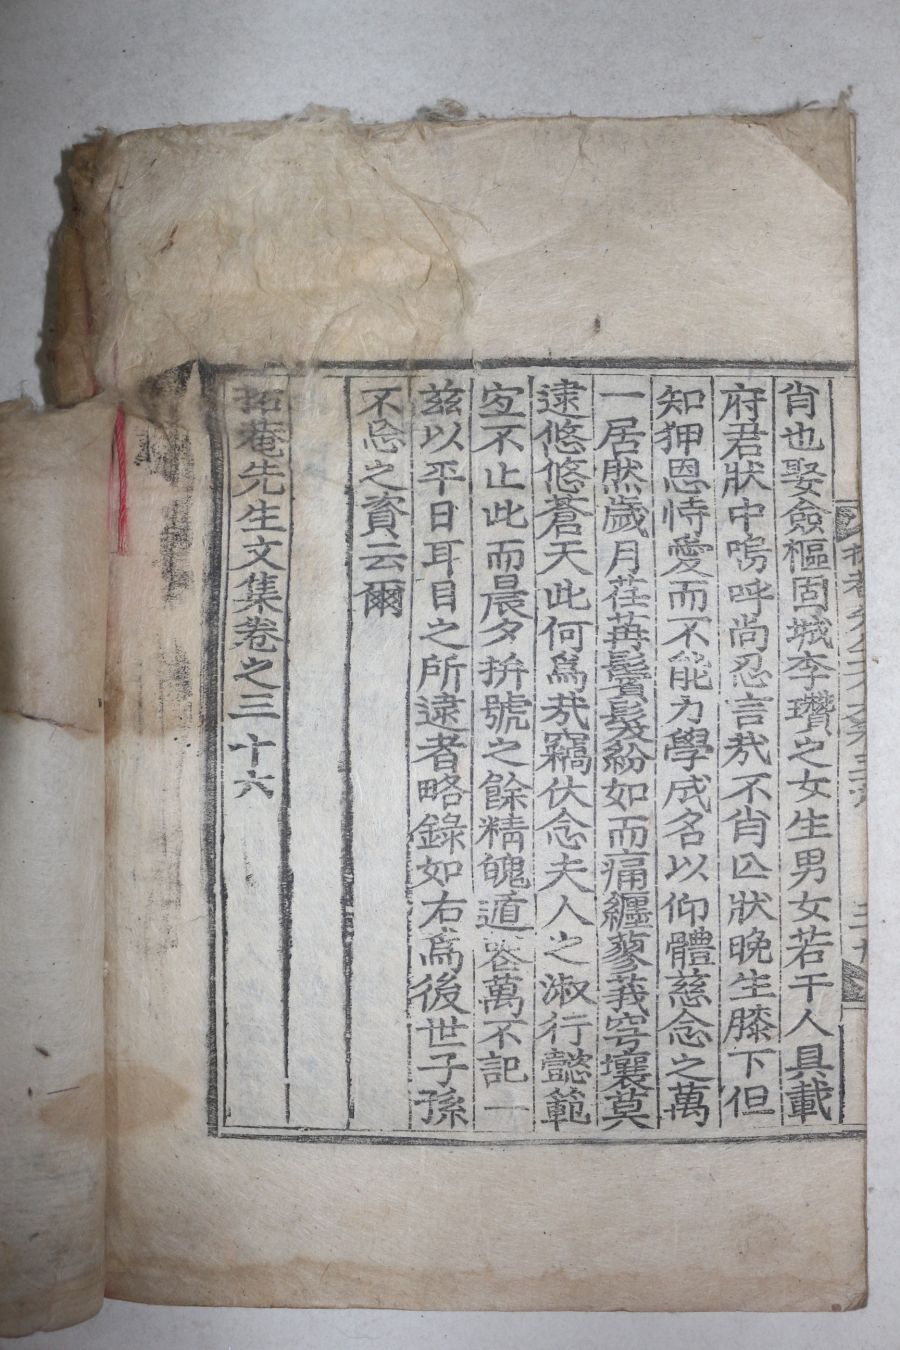 肖也娶僉樞固城李瓚之女生男女若干人具載
府君狀中嗚呼尚忍言㢤不肖亾狀晩生膝下但
知狎恩恃愛而不能力學成名以仰體慈念之萬
一居然歲月荏苒鬂髮紛如而痛纏蓼莪穹壤莫
逮悠悠蒼天此何爲㢤竊伏念夫人之淑行懿範
宜不止此而晨夕拚號之餘精魄遁喪萬不記一
兹以平日耳目之所逮者略錄如右爲後世子孫
不忘之資云爾
拓菴先生文集卷之三十六